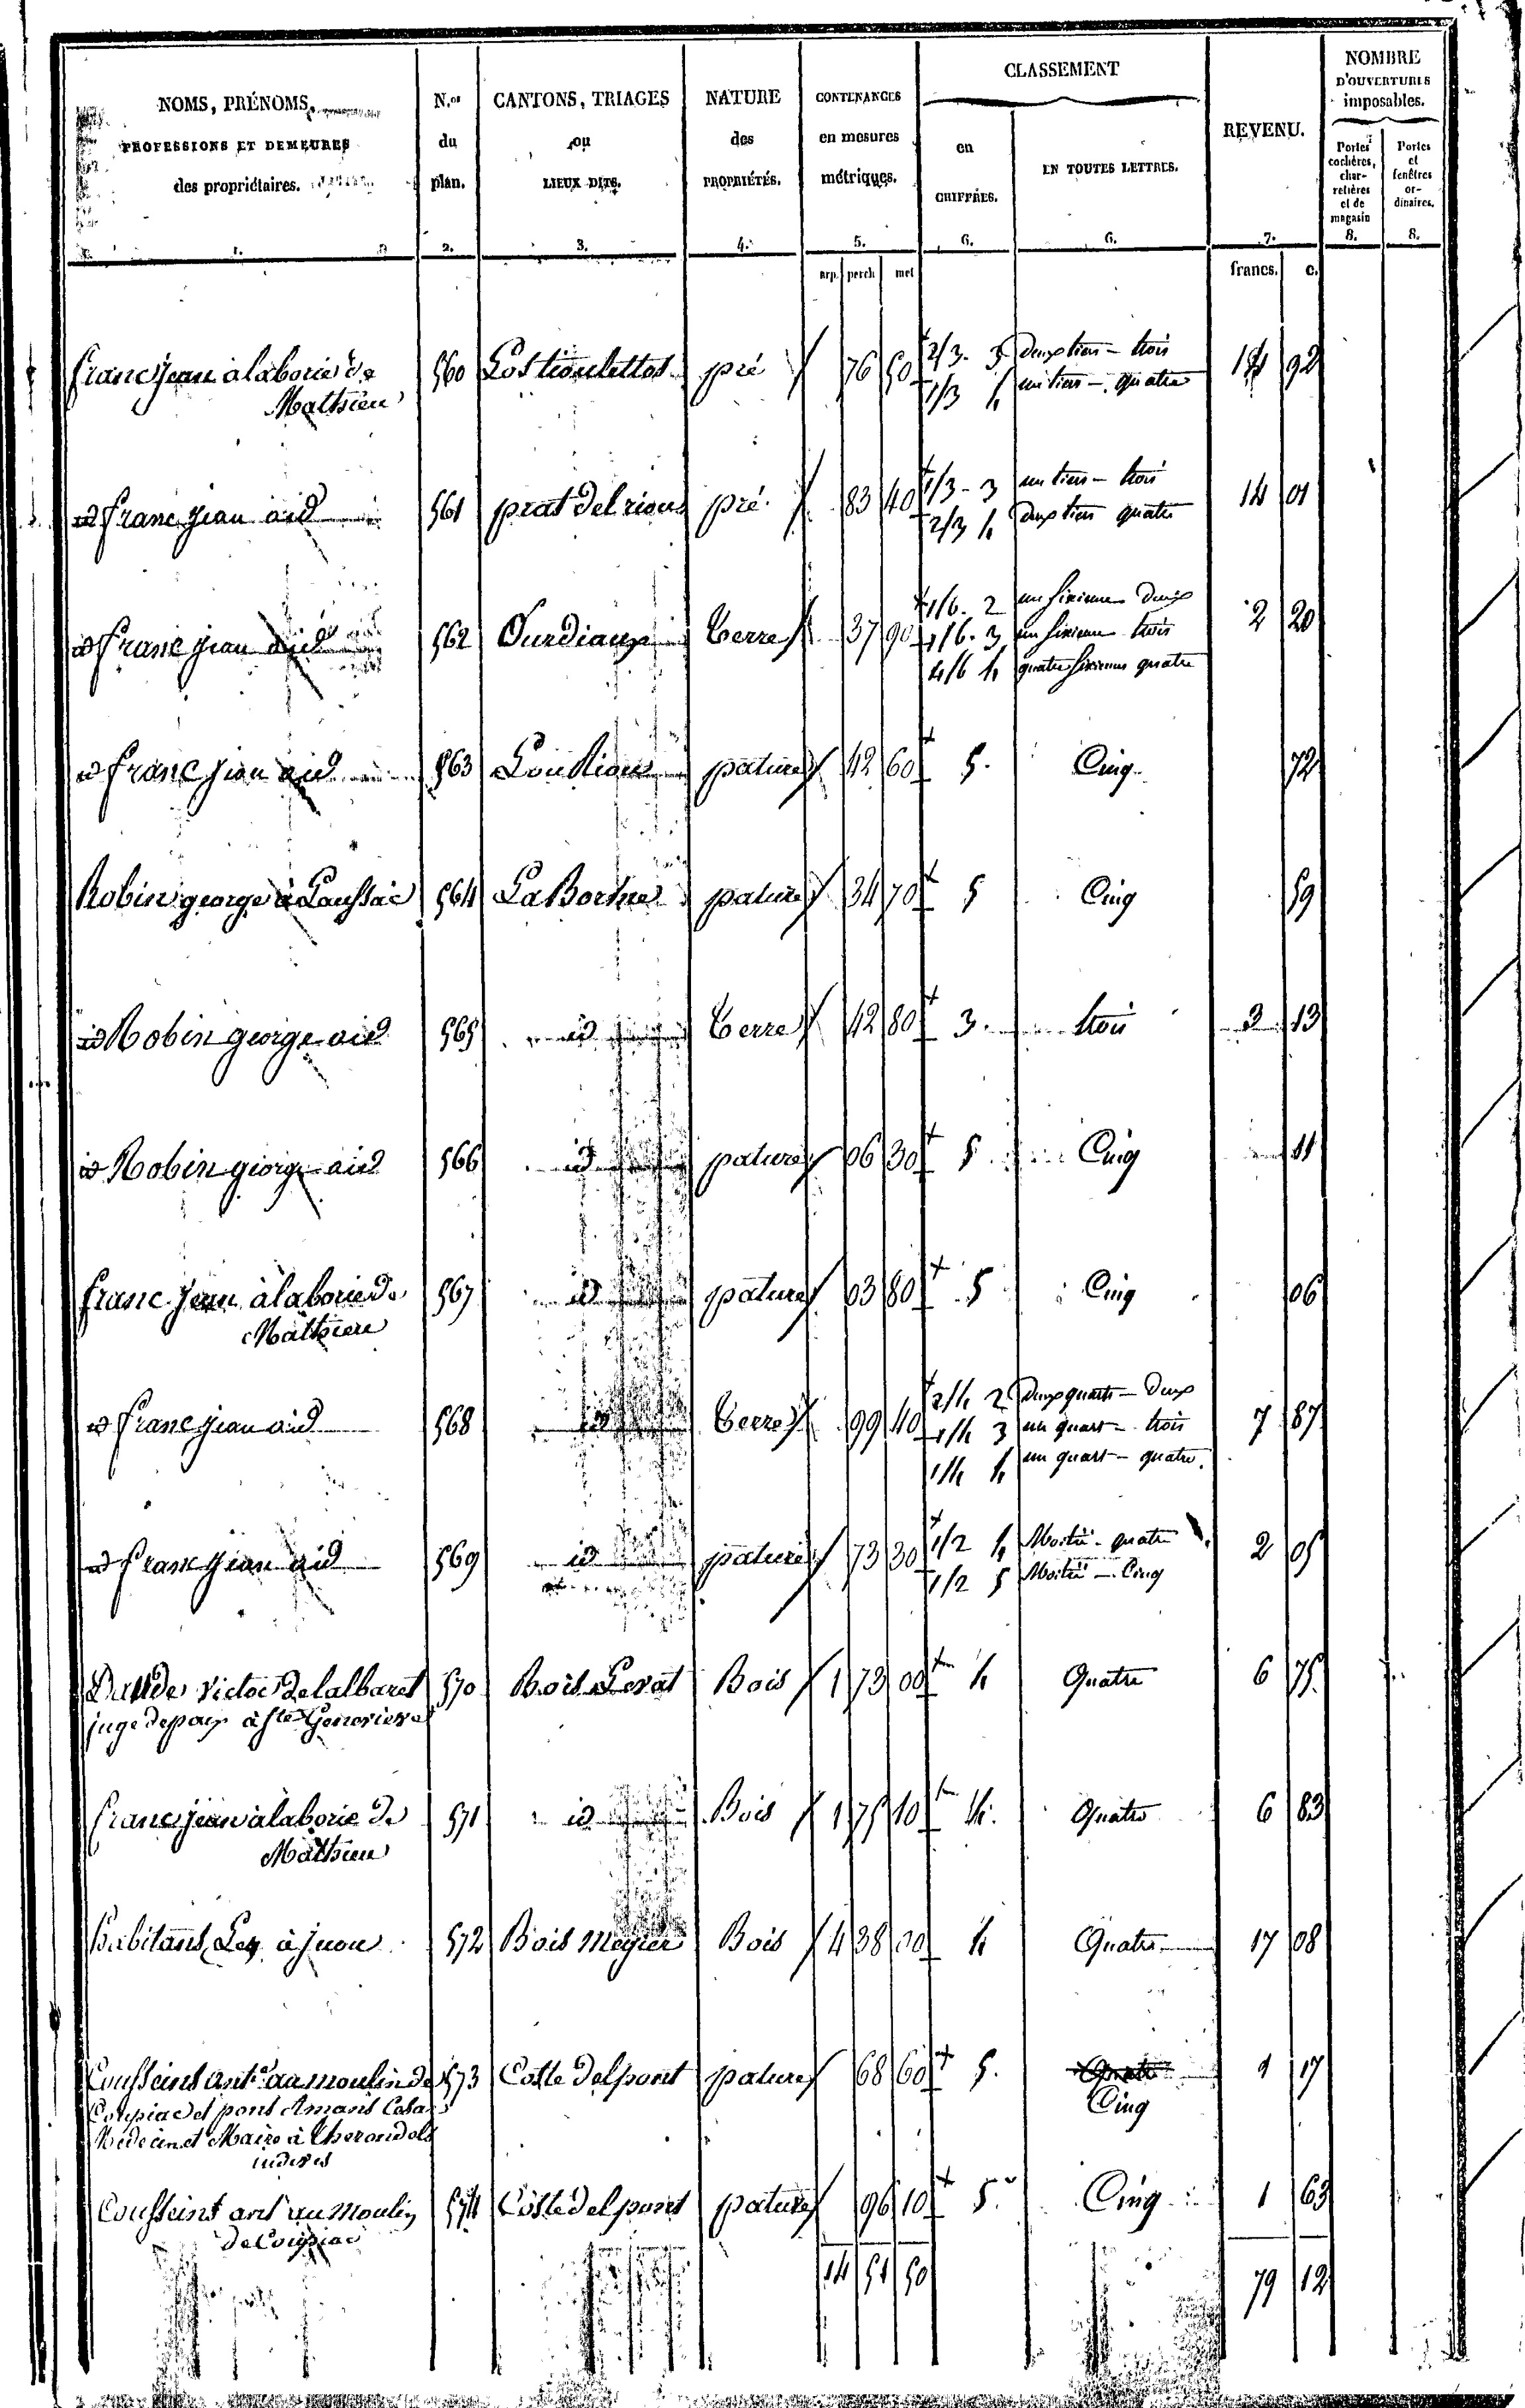 NOMS, PRÉNOMS, PROFESSIONS ET DEMEURES des propriétaires. 1. | N.os du plan. 2. | CANTONS, TRIAGES ou LIEUX DITS. 3. | NATURE des PROPRIÉTÉS. 4. | CONTENANCES en mesures métriques. 5. | CLASSEMENT en CHIFFRES. 6. | EN TOUTES LETTRES. 6. | REVENU. 7. | NOMBRE D'OUVERTURES imposables. Portes cochères, charretières et de magasin 8. | Portes et fenêtres ordinaires. 8.
arp. perch met | francs. c.
franc jean à laborie de 560 Los tioulettos pré 76 50 2/3. 3 deux tiers - trois 18 92
Mathieu 1/3 4 un tiers - quatre
id franc jean a id 561 prat del rieu pré 83 40 1/3 - 3 un tiers - trois 14 01
2/3 4 deux tiers quatre
id franc jean a id 562 terre 37 90 1/6. 2 un sixieme deux 2 20
1/6. 3 un sixieme trois
4/6 4 quatre sixiemes quatre
id franc jean a id 563 pature 42 60 5. Cinq 72
Robin george à Laussac 564 La Borthe pature 34 70 5 Cinq 59
id Robin george a id 565 id terre 42 80 3. trois 3 13
id Robin george a id 566 id pature 06 30 5 Cinq 11
franc jean à laborie de 567 id pature 03 80 5 Cinq 06
Mathieu
id franc jean a id 568 id terre 99 40 2/4 2 deux quarts - deux 7 87
1/4 3 un quart - trois
1/4 4 un quart - quatre.
id franc jean a id 569 id pature 73 30 1/2 4 Moitié - quatre 2 05
1/2 5 Moitié - Cinq
victor de lalbaret 570 Bois Levat Bois 1 73 00 4 Quatre 6 75.
juge de paix à Ste Genevieve
franc jean à laborie de 571 id Bois 1 75 10 4. Quatre 6 83
Mathieu
habitans Les à juou 572 Bois meyier Bois 4 38 00 4 Quatre 17 08
Cousseins ant.e au moulin de 573 Coste del pont pature 68 60 5. Quatre 1 17
et pons Amans Casa Cinq
Médecin et Maire à therondels
indivis
Cousseins ant au Moulin 574 Coste del pont pature 96 10 5. Cinq 1 63
14 51 50 79 12